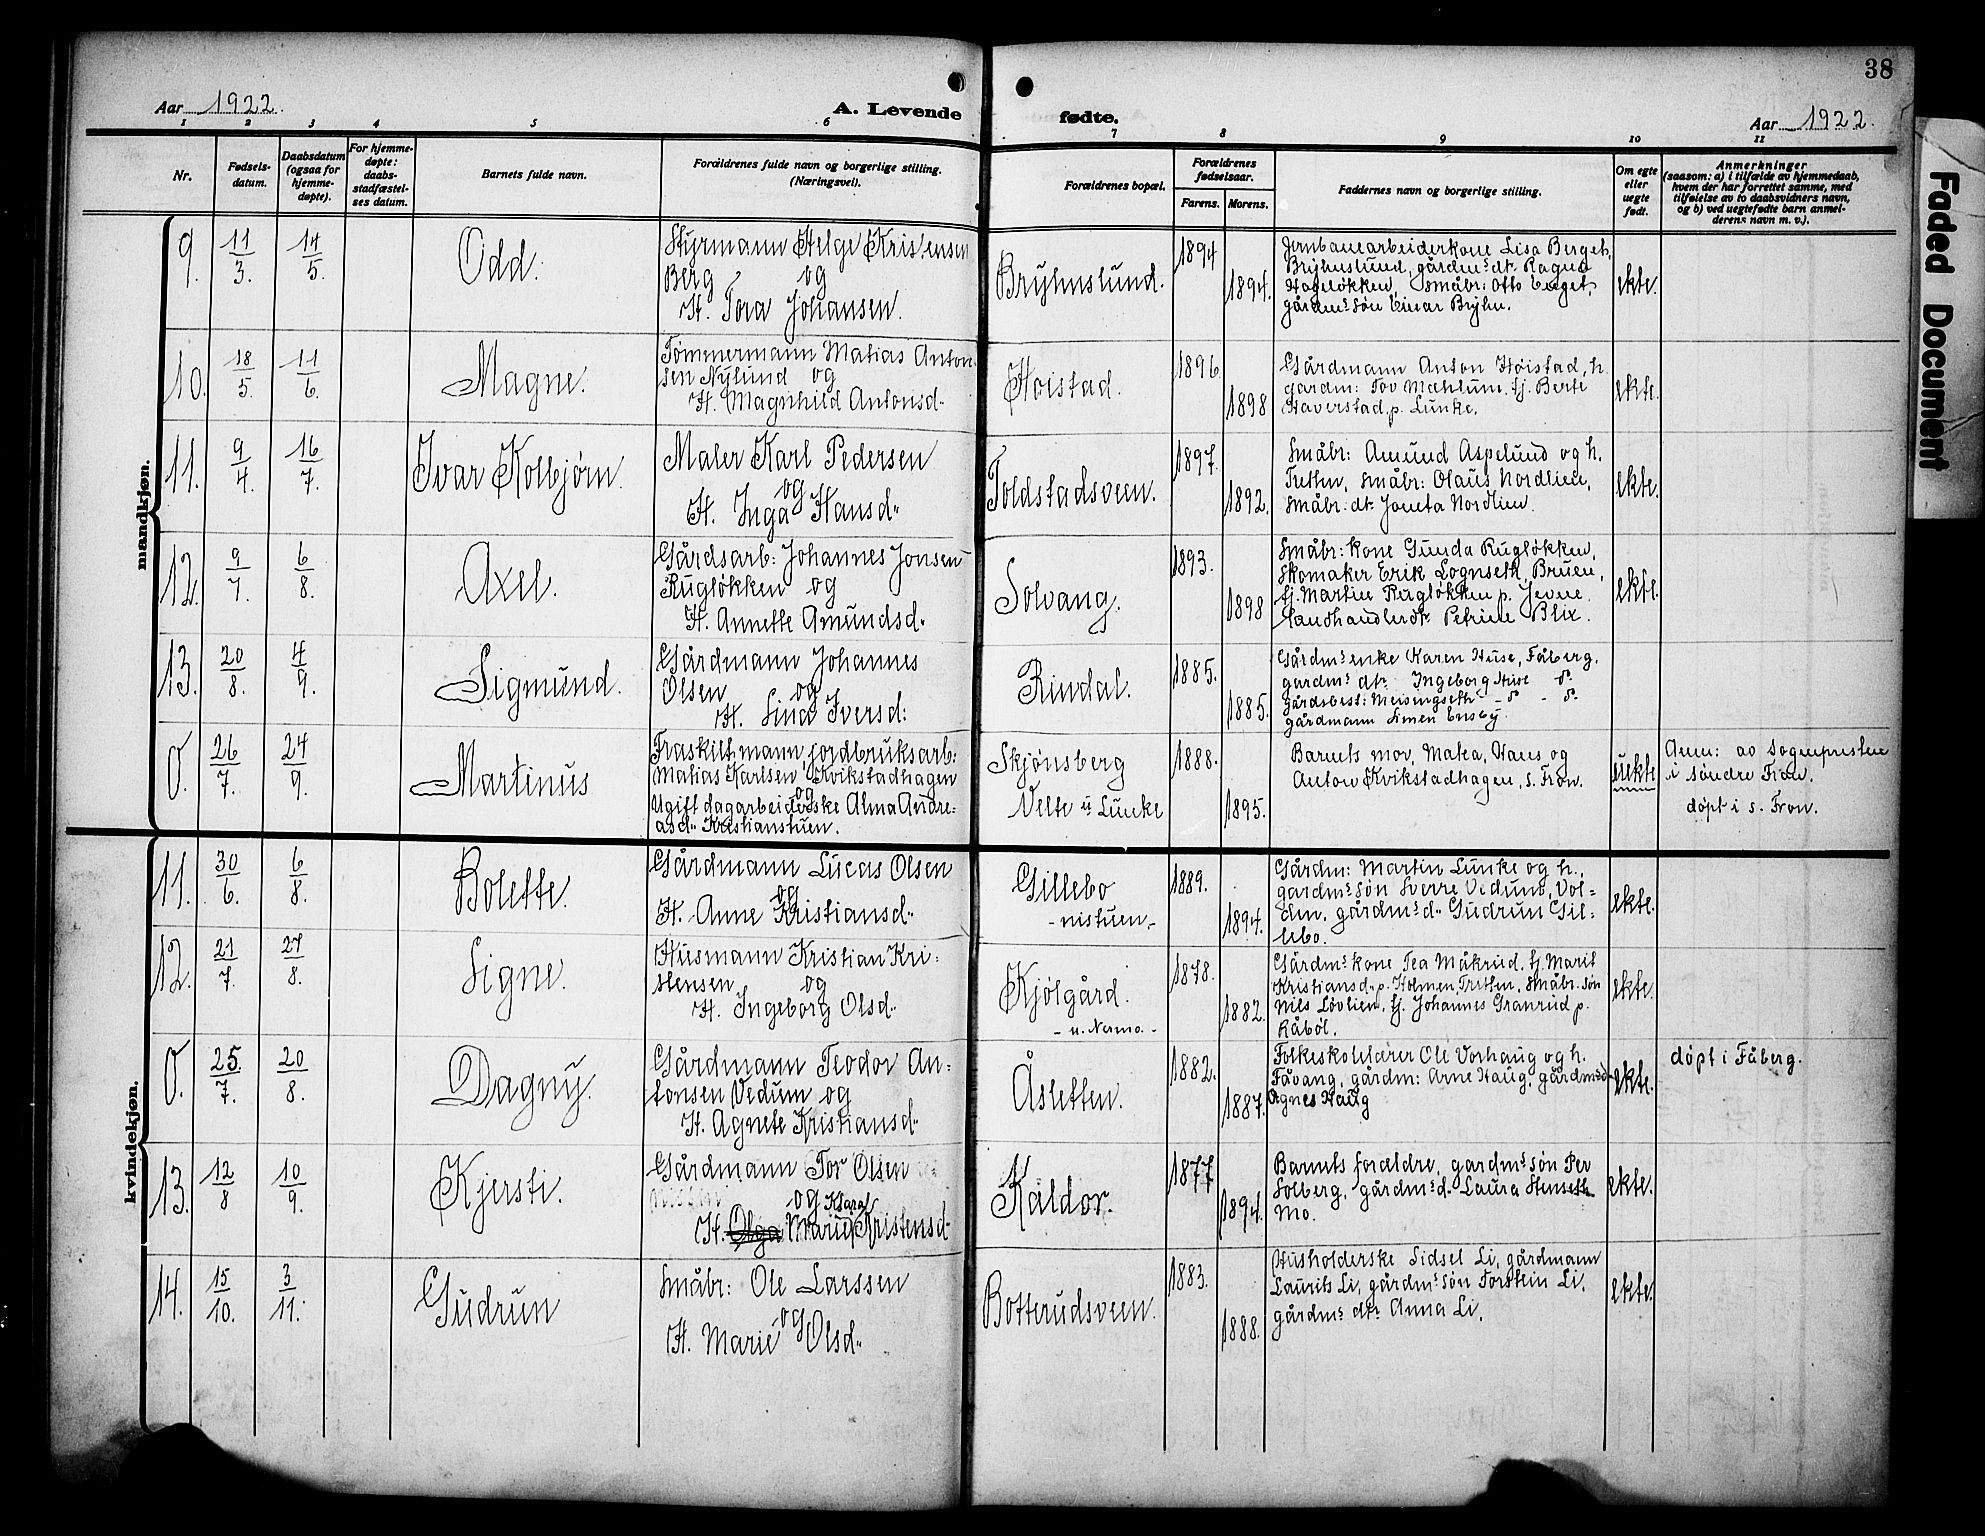 38
Aar 1922.
A. Levende fødte.
Aar 1922.
1 2 3 4 5 6 7 8 9 10 11
Nr.
Fødsels-
datum.
Daabsdatum
(ogsaa for
hjemme-
døpte).
For hjemme-
døpte:
daabs-
stadfæstel-
ses datum.
Barnets fulde navn.
Forældrenes fulde navn og borgerlige stilling.
(Næringsvei).
Forældrenes bopæl.
Forældrenes
fødselsaar.
Farens. Morens.
Faddernes navn og borgerlige stilling.
Om egte
eller
uegte
født.
Anmerkninger
(saasom: a) i tilfælde av hjemmedaab,
hvem der har forrettet samme, med
tilføielse av to daabsvidners navn,
og b) ved uegtefødte barn anmel-
derens navn m. v.).
Faded Document
mandkjøn.
9. 11/3. 14/5. Odd.
Styrmann Helge Kristensen
Berg og
H. Tora Johansen.
Bryhnslund.
1894
1894.
Jernbanearbeiderkone Lisa Berget,
Bryhnslund, gårdm.s dt. Ragna
Hageløkken, småbr: Otto Berget,
gårdm.s søn Einar Bryhn.
ekte.
10. 18/5. 11/6. Magne.
Tømmermann Matias Anton-
sen Nylund og
H. Magnhild Antonsd.
Høistad.
1896
1898
Gårdmann Anton Høistad, h.
gårdm: Tov Mæhlum, fj. Berte
Haverstad, p. Lunke.
ekte.
11. 9/4. 16/7. Ivar Kolbjørn.
Maler Karl Pedersen
og
H. Inga Hansd.
Toldstadsveen.
1897.
1892.
Småbr: Amund Aspelund og h.
Tretten, småbr: Olaus Nordlien,
småbr: dt. Joneta Nordlien.
ekte.
12. 9/7. 6/8. Axel.
Gårdsarb: Johannes Jonsen
Rugløkken og
H. Annette Amundsd.
Solvang.
1893.
1898
Småbr: kone Gunda Rugløkken,
Skomaker Erik Lognseth, Bruen,
fj. Martin Rugløkken p. Jevne,
Landhandlerdt. Petrine Blix.
ekte.
13. 20/8. 4/9. Sigmund.
Gårdmann Johannes
Olsen og
H. Lina Iversd:
Rindal.
1885.
1885.
Gårdm.s enke Karen Huse, Fåberg.
gårdm.s dt. Ingeborg Huse
gårdsbest: Meisingseth
gårdmann Simen Ensby.
0. 26/7. 24/9. Martinus
Fraskilt mann, jordbruksarb:
Matias Karlsen Kvikstadhagen
og
Ugift dagarbeiderske Alma Andre-
asd. Kristianstuen.
Skjønsberg
Velte u Lunke
1888.
1895.
Barnets mor, Matea, Hans og
Anton Kvikstadhagen, s. Fron.
uekte
Anm: av Sognepresten
i søndre Fron.
døpt i s. Fron.
kvindekjøn.
11. 30/6. 6/8. Bolette.
Gårdmann Lucas Olsen
og
H. Anne Kristiansd.
Gillebo
- nistuen -
1889.
1894.
Gårdm: Martin Lunke og h.,
gårdm.s søn Sverre Vedum, Vol-
den, gårdm.s d. Gudrun Gil-
lebo.
ekte.
12. 21/7. 27/8. Signe.
Husmann Kristian Kri-
stensen og
H. Ingeborg Olsd.
Kjølgård.
- u. Nermo. -
1878.
1882.
Gårdm.s kone Tea Måkrud, fj. Marit
Kristiansd. p. Holmen, Tretten, Småbr. søn
Nils Løvlien, fj. Johannes Granrud p.
Råbøl.
ekte.
0. 25/7. 20/8. Dagny.
Gårdmann Teodor An-
tonsen Vedum og
H. Agnete Kristiansd.
Åsletten.
1882.
1887.
Folkeskolelærer Ole Vorhaug og h.
Fåvang, gårdm: Arne Haug, gårdm.s d.
Agnes Haug
ekte.
døpt i Fåberg.
13. 12/8 10/9. Kjersti.
Gårdmann Tor Olsen
og Klara
H. Olga Marie Kristensd.
Kaldor.
1877
1894.
Barnets forældre, gårdm.s søn Per
Solberg, gårdm.s d. Laura Stenseth
Mo.
ekte.
14. 15/10. 3/11. Gudrun
Småbr: Ole Larssen
og
H. Marie Olsd.
Botterudsveen.
1883.
1888.
Husholderske Sidsel Li, gårdmann
Laurits Li, gårdm.s søn Torstein Li,
gårdm.s dt. Anna Li.
ekte.